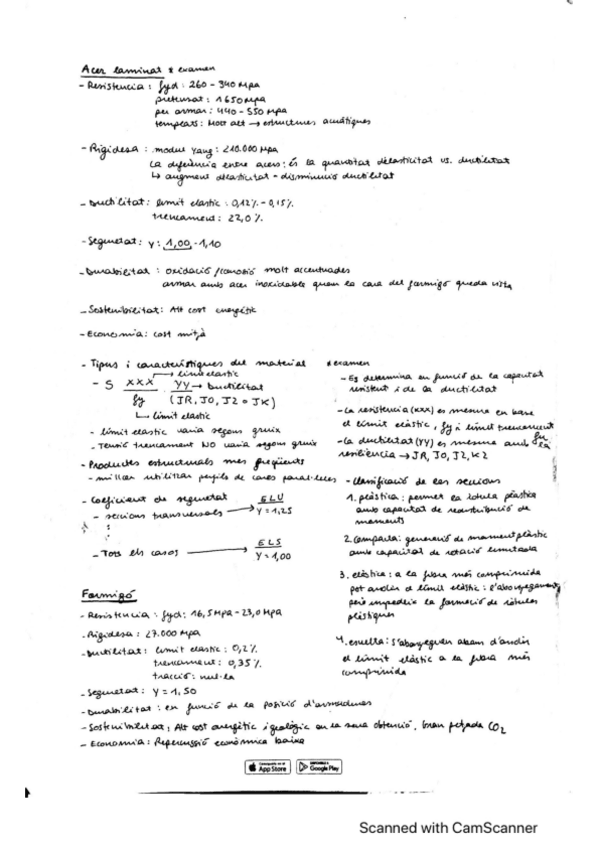 Acer laminat * examen
- Resistencia: fyd: 260 - 340 MPa
pretensat: 1650 MPa
per armar: 440 - 550 MPa
templats: Molt alt → estructures acústiques
- Rigidesa: modul Yang: 210.000 MPa
La diferència entre acers: És la quantitat d'elasticitat vs. ductilitat
↳ augment d'elasticitat - disminució ductilitat
- Ductilitat: límit elastic: 0,12% - 0,15%
trencament: 23,0%
- Seguretat: γ: 1,00 - 1,10
- Durabilitat: oxidació/corrosió molt accentuades
armar amb acer inoxidable quan la cara del formigó queda vista
- Sostenibilitat: Alt cost energètic
- Economia: cost mitjà
- Tipus i característiques del material
- S XXX YY → Ductilitat
→ límit elastic
fy (JR, J0, J2 o JK)
↳ límit elastic
- límit elastic varia segons gruix
- Tensió trencament NO varia segons gruix
- Productes estructurals més freqüents
- millor utilitzar perfils de cares paral·leles
- Coeficient de seguretat
- seccions transversals → ELU γ = 1,25
- Tots els casos → ELS γ = 1,00
* examen
- Es determina en funció de la capacitat
resistent i de la ductilitat
- La resistencia (XXX) es mesura en base
el límit elàstic, fy i límit trencament
fu
- La ductilitat (YY) es mesura amb la
resiliència → JR, J0, J2, K2
- Classificació de les seccions
1. plàstica: permet la ròtula plàstica
amb capacitat de redistribució de
moments
2. Compacta: generació de moment plàstic
amb capacitat de rotació limitada
3. elàstica: a la fibra més comprimida
pot arribar al límit elàstic: l'abonyegament
però impedeix la formació de ròtules
plàstiques
4. esvelta: s'abonyeguen abans d'arribar
el límit elàstic a la fibra més
comprimida
Formigó
- Resistencia: fyd: 16,5 MPa - 23,0 MPa
- Rigidesa: 27.000 MPa
- Ductilitat: límit elastic: 0,2%
trencament: 0,35%
tracció: nul·la
- Seguretat: γ = 1,50
- Durabilitat: en funció de la posició d'armadures
- Sostenibilitat: Alt cost energètic i geològic en la seva obtenció, Gran petjada CO2
- Economia: Repercussió econòmica baixa
App Store
Google Play
Scanned with CamScanner